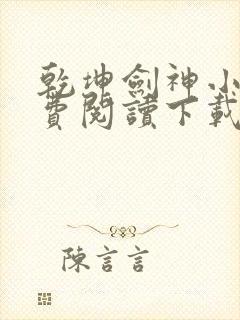 乾坤劍神小
費閱讀下載
陳言言